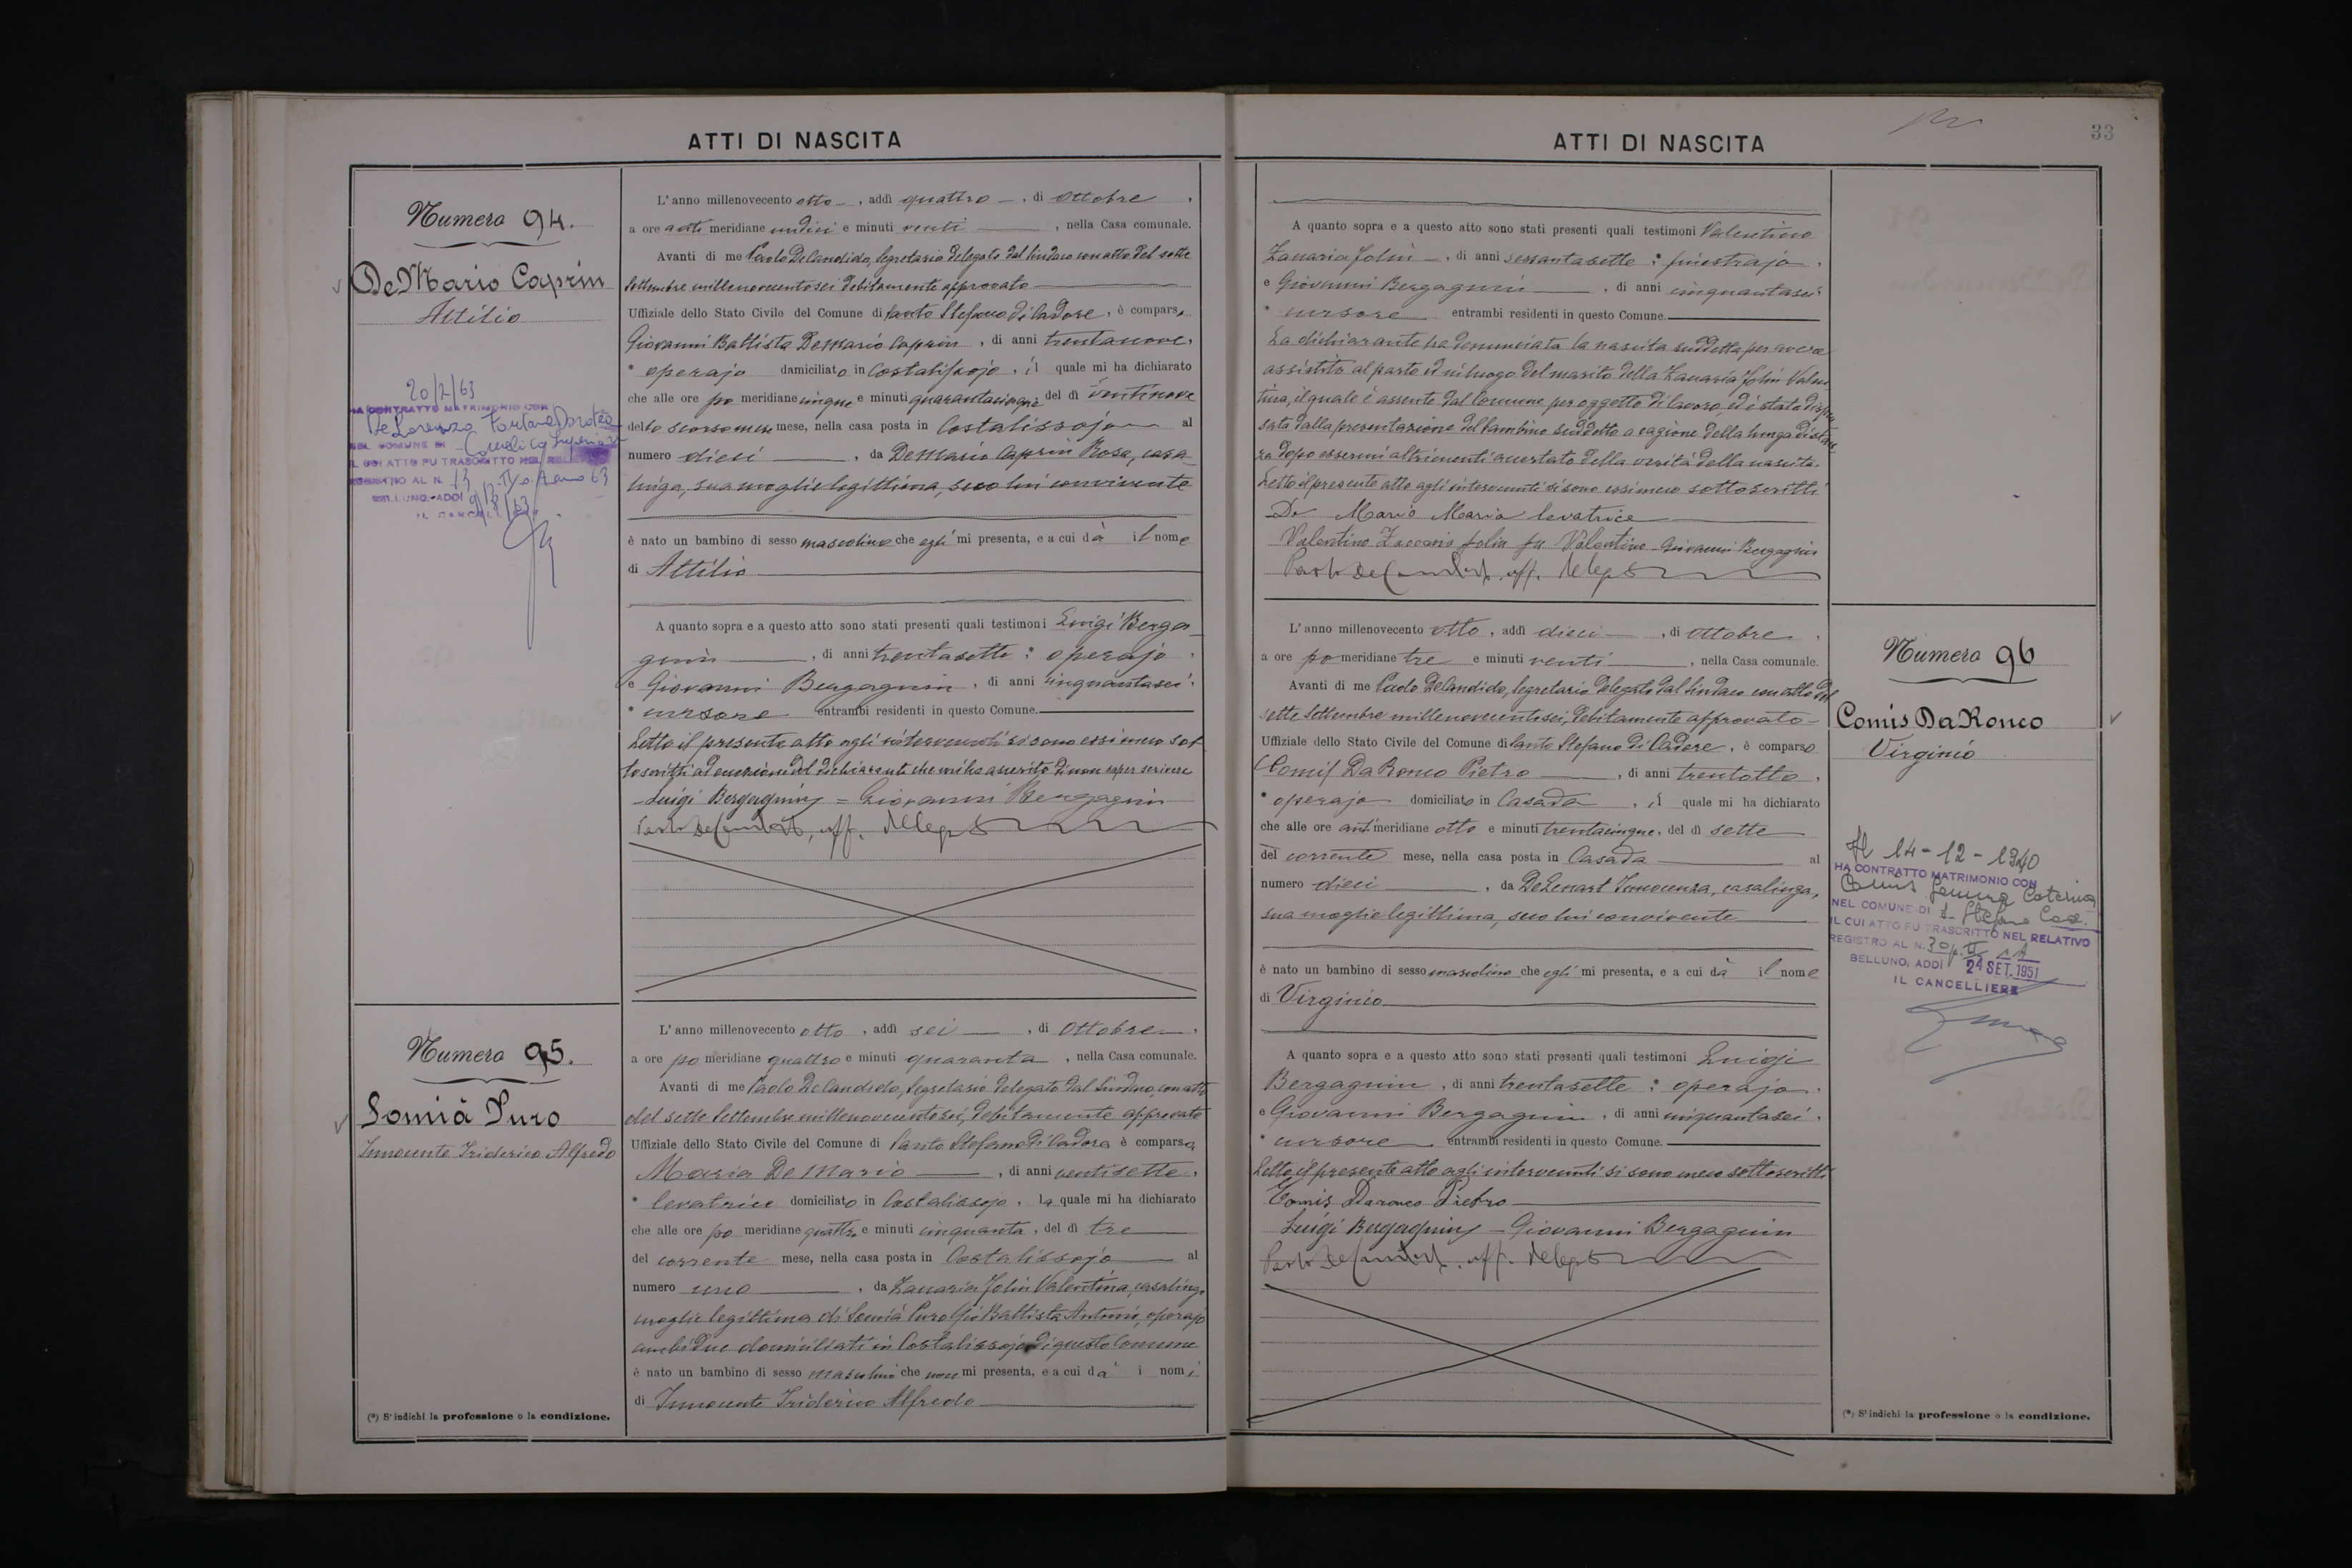 ATTI DI NASCITA
Numero 94.
De Mario Caprin
Attilio
20/2/63
HA CONTRATTO MATRIMONIO CON
De Lorenzo Fontana Dorotea
NEL COMUNE DI Comelico Superiore
IL CUI ATTO FU TRASCRITTO NEL RELATIVO
REGISTRO AL N. 13
BELLUNO, ADDÌ 9/3/63
IL CANCELLIERE
L'anno millenovecento otto, addì quattro, di Ottobre,
a ore anti meridiane undici e minuti venti, nella Casa comunale.
Avanti di me Paolo De Candido, Segretario delegato dal Sindaco con atto del sette
Settembre millenovecentosei debitamente approvato
Uffiziale dello Stato Civile del Comune di Santo Stefano di Cadore, è comparso
Giovanni Battista De Mario Caprin, di anni trentanove,
* operajo domiciliato in Costalissojo, il quale mi ha dichiarato
che alle ore po meridiane cinque e minuti quarantacinque del dì ventinove
dello scorso mese mese, nella casa posta in Costalissojo al
numero dieci, da De Mario Caprin Rosa, casa-
linga, sua moglie legittima, seco lui convivente
è nato un bambino di sesso mascolino che egli mi presenta, e a cui dà il nome
di Attilio
A quanto sopra e a questo atto sono stati presenti quali testimoni Luigi Berga-
gnin, di anni trentasette: operajo,
e Giovanni Bergagnin, di anni cinquantasei,
* cursore entrambi residenti in questo Comune.
Letto il presente atto agli intervenuti si sono essi meco sot-
toscritti ad eccezione del dichiarante che mi ha asserito di non saper scrivere
Luigi Bergagnin = Giovanni Bergagnin
Paolo De Candido, uff. deleg
Numero 95.
Somià Puro
Innocente Friderico Alfredo
L'anno millenovecento otto, addì sei, di Ottobre,
a ore po meridiane quattro e minuti quaranta, nella Casa comunale.
Avanti di me Paolo De Candido, Segretario delegato dal Sindaco, con atto
del sette Settembre millenovecentosei, debitamente approvato
Uffiziale dello Stato Civile del Comune di Santo Stefano di Cadore è comparsa
Maria De Mario, di anni ventisette,
* levatrice domiciliato in Costalissojo, la quale mi ha dichiarato
che alle ore po meridiane quattro e minuti cinquanta, del dì tre
del corrente mese, nella casa posta in Costalissojo al
numero uno, da Zaccaria Jolin Valentina, casalinga
moglie legittima di Somià Puro Gio Battista Antonio, operajo
ambidue domiciliati in Costalissojo di questo Comune
è nato un bambino di sesso mascolino che non mi presenta, e a cui dà i nomi
di Innocente Friderico Alfredo
(*) S'indichi la professione o la condizione.
ATTI DI NASCITA
33
A quanto sopra e a questo atto sono stati presenti quali testimoni Valentino
Zaccaria Jolin, di anni sessantasette: finestrajo,
e Giovanni Bergagnin, di anni cinquantasei,
* cursore entrambi residenti in questo Comune.
La dichiarante ha denunciata la nascita suddetta per avere
assistito al parto ed in luogo del marito della Zaccaria Jolin Valen-
tina, il quale è assente dal Comune per oggetto di lavoro, ed è stata dispen-
sata dalla presentazione del bambino suddetto a cagione della lunga distan-
za dopo essermi altrimenti accertato della verità della nascita.
Letto il presente atto agli intervenuti si sono essi meco sottoscritti
De Mario Maria levatrice
Valentino Zaccaria Jolin fu Valentino Giovanni Bergagnin
Paolo De Candido, uff. deleg
Numero 96
Comis Da Ronco
Virginio
Il 14-12-1940
HA CONTRATTO MATRIMONIO CON
Comis Caterina
NEL COMUNE DI S. Stefano Cad.
IL CUI ATTO FU TRASCRITTO NEL RELATIVO
REGISTRO AL N. 30 p. II s A
BELLUNO, ADDÌ 24 SET. 1951
IL CANCELLIERE
L'anno millenovecento otto, addì dieci, di Ottobre,
a ore po meridiane tre e minuti venti, nella Casa comunale.
Avanti di me Paolo De Candido, Segretario delegato dal Sindaco con atto del
sette Settembre millenovecentosei, debitamente approvato
Uffiziale dello Stato Civile del Comune di Santo Stefano di Cadore, è comparso
Comis Da Ronco Pietro, di anni trentotto,
* operajo domiciliato in Casada, il quale mi ha dichiarato
che alle ore anti meridiane otto e minuti trentacinque, del dì sette
del corrente mese, nella casa posta in Casada al
numero dieci, da De Lenart Innocenza, casalinga,
sua moglie legittima, seco lui convivente
è nato un bambino di sesso mascolino che egli mi presenta, e a cui dà il nome
di Virginio
A quanto sopra e a questo atto sono stati presenti quali testimoni Luigi
Bergagnin, di anni trentasette: operajo,
e Giovanni Bergagnin, di anni cinquantasei,
* cursore entrambi residenti in questo Comune.
Letto il presente atto agli intervenuti si sono meco sottoscritti
Comis Daronco Pietro
Luigi Bergagnin - Giovanni Bergagnin
Paolo De Candido, uff. deleg
(*) S'indichi la professione o la condizione.